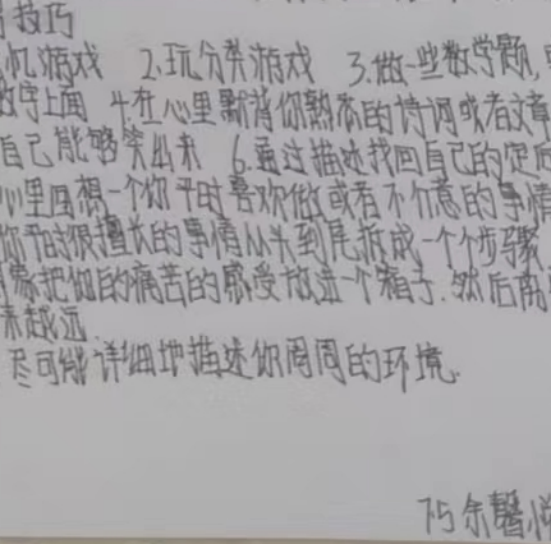 技巧
机游戏 2.玩分类游戏 3.做一些数学题,
数字上面 4.在心里默背你熟悉的诗词或者文章
自己能够笑出来 6.通过描述找回自己的定向
心里回想一个你平时喜欢做或者不介意的事情
你平时很擅长的事情从头到尾拆成一个个步骤
象把你的痛苦的感受放进一个箱子.然后离
来越远.
尽可能详细地描述你周周的环境.
75余馨悦